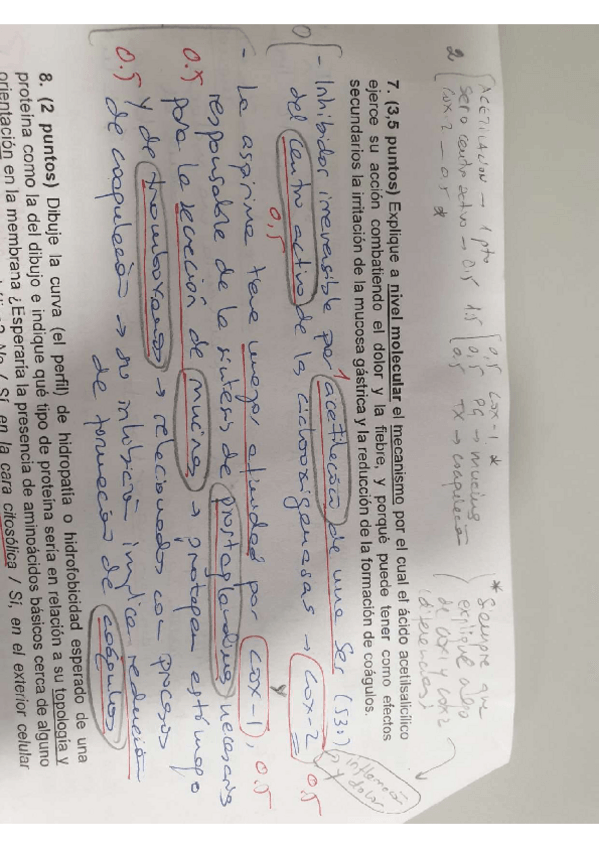 ACETILACIÓN → 1 pto
2 sero centro activo → 0.5
COX-2 — 0.5 *
1.5 0,5 COX-1 *
0,5 PG → mucina
0,5 TX → coagulación
* Siempre que
explique algo
de COX1 y COX2
(diferencias)
7. (3,5 puntos) Explique a nivel molecular el mecanismo por el cual el ácido acetilsalicílico
ejerce su acción combatiendo el dolor y la fiebre, y porqué puede tener como efectos
secundarios la irritación de la mucosa gástrica y la reducción de la formación de coágulos.
- Inhibidor irreversible por acetilación de una Ser (530)
1
del centro activo de la ciclooxigenasas → COX-2
0.5
0.5
inflamación
y dolor
- La aspirina tiene mayor afinidad por COX-1, 0.5
responsable de la síntesis de prostaglandinas necesaria
0.5 para la secreción de mucina → protegen estómago
y de tromboxanos → relacionados con procesos
0.5 de coagulación → su inhibición implica reducción
de formación de coágulos
8. (2 puntos) Dibuje la curva (el perfil) de hidropatía o hidrofobicidad esperado de una
proteína como la del dibujo e indique qué tipo de proteína sería en relación a su topología y
orientación en la membrana ¿Esperaría la presencia de aminoácidos básicos cerca de alguno
? No / Sí, en la cara citosólica / Sí, en el exterior celular